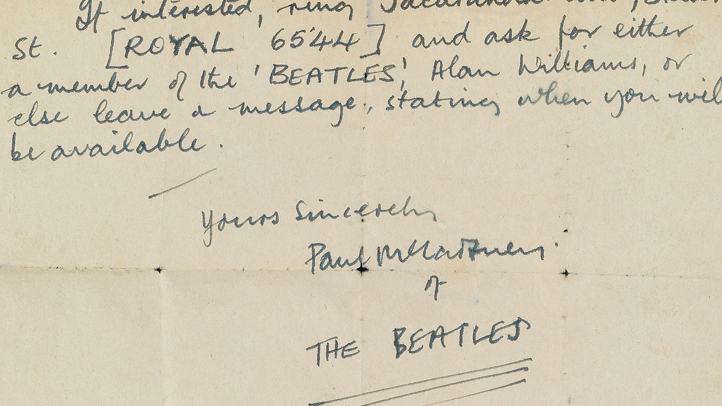 If interested, ring Jacaranda Club, Slater
St. [ROYAL 6544] and ask for either
a member of the 'BEATLES', Alan Williams, or
else leave a message, stating when you will
be available.
Yours Sincerely
Paul McCartney
of
THE BEATLES